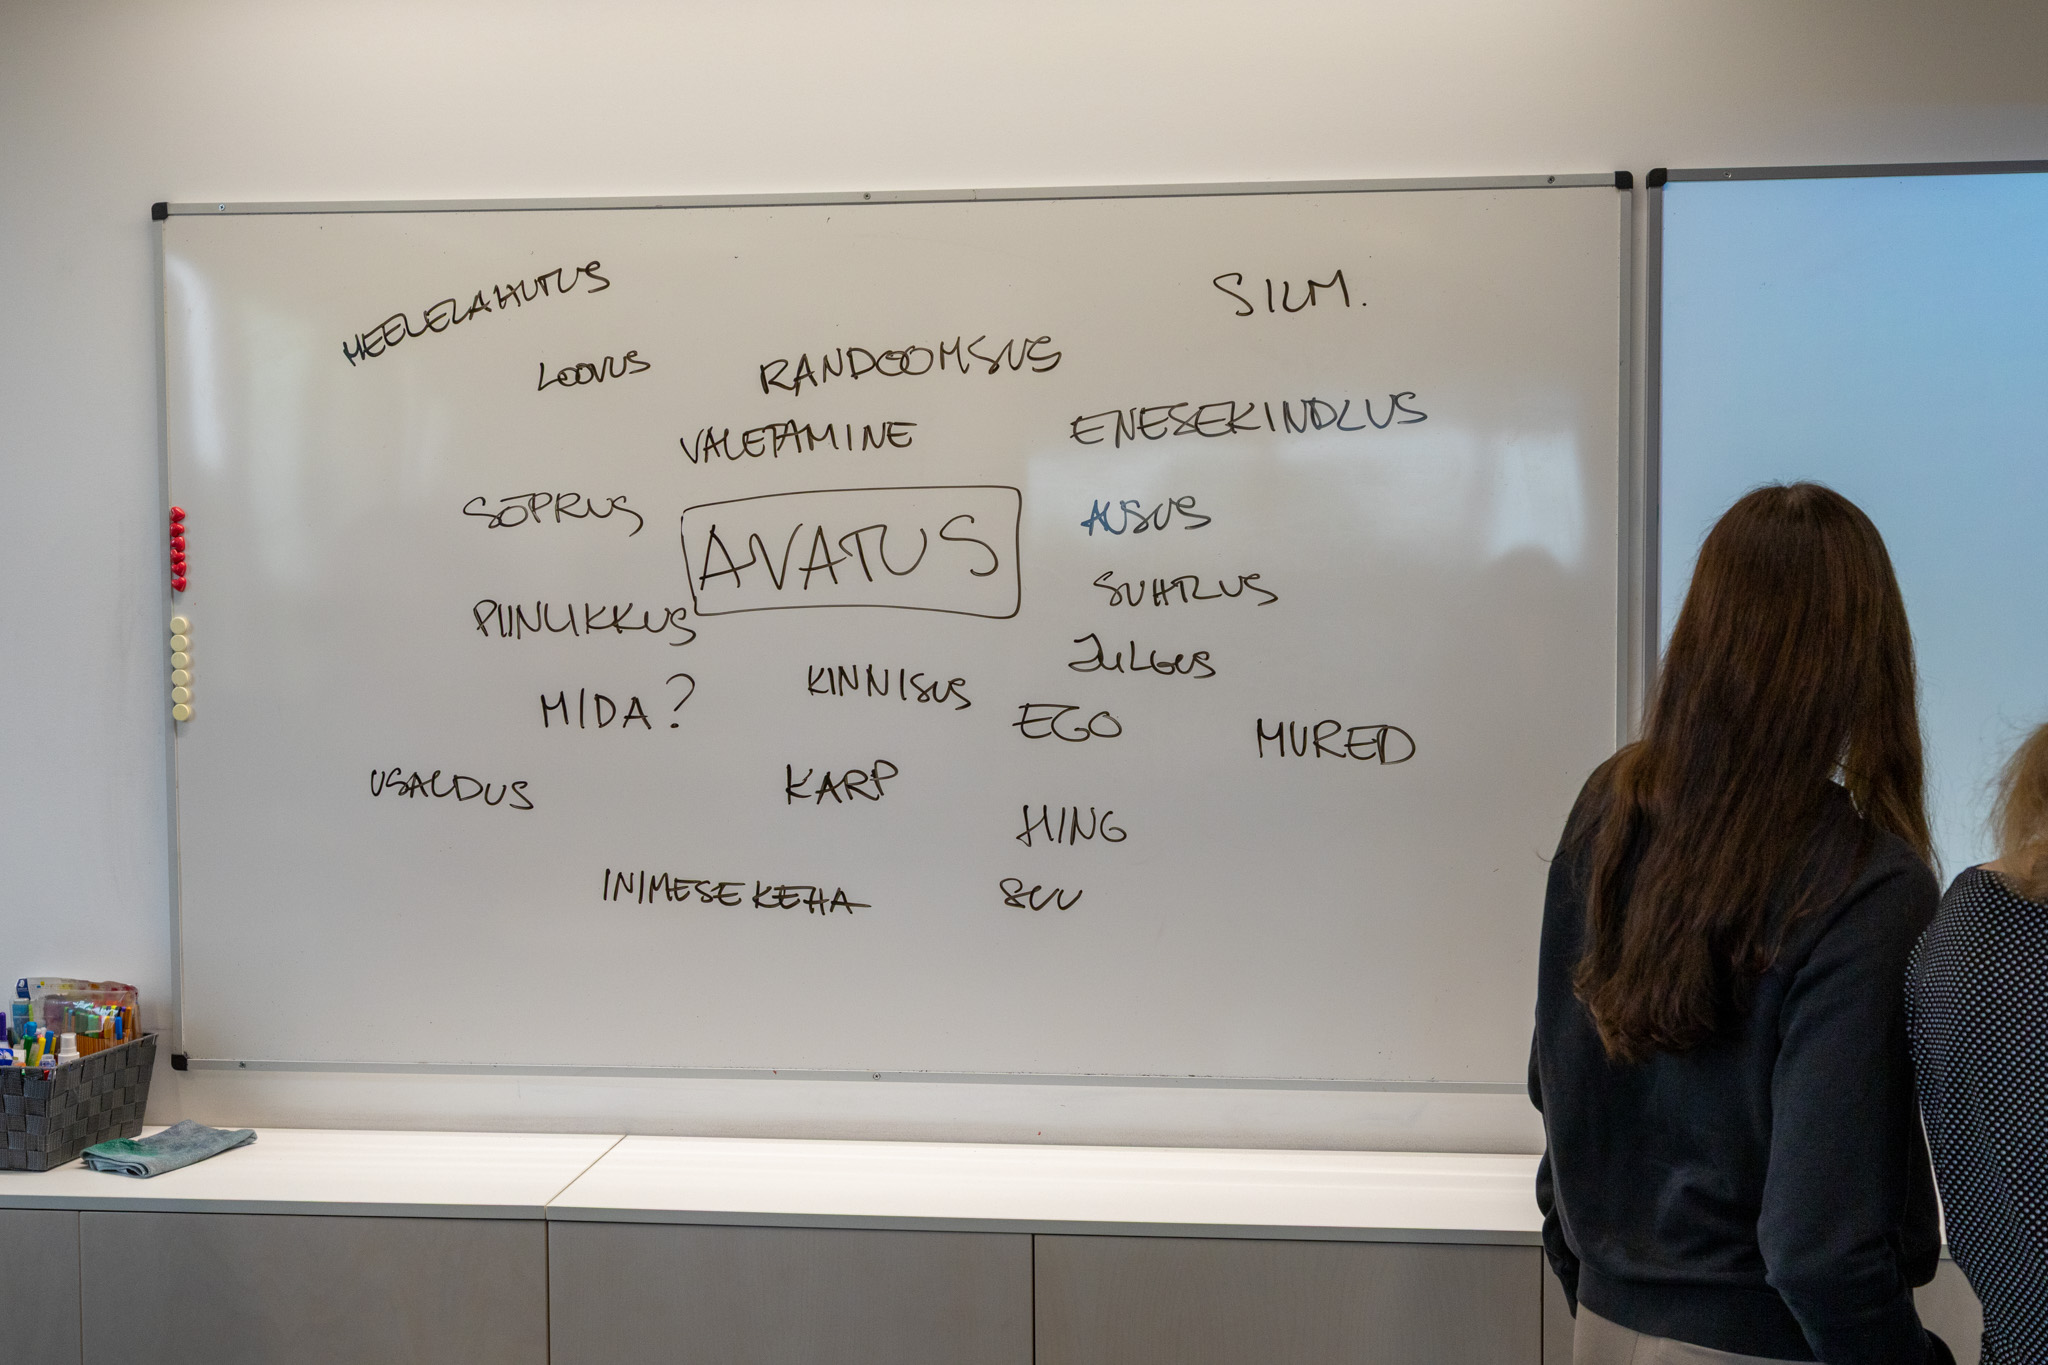 MEELELAHUTUS
SILM.
LOOVUS
RANDOOMSUS
VALETAMINE
ENESEKINDLUS
SÕPRUS
AVATUS
AUSUS
SUHTLUS
PIINLIKKUS
JULGUS
KINNISUS
MIDA?
EGO
MURED
USALDUS
KARP
HING
INIMESE KEHA
SUU